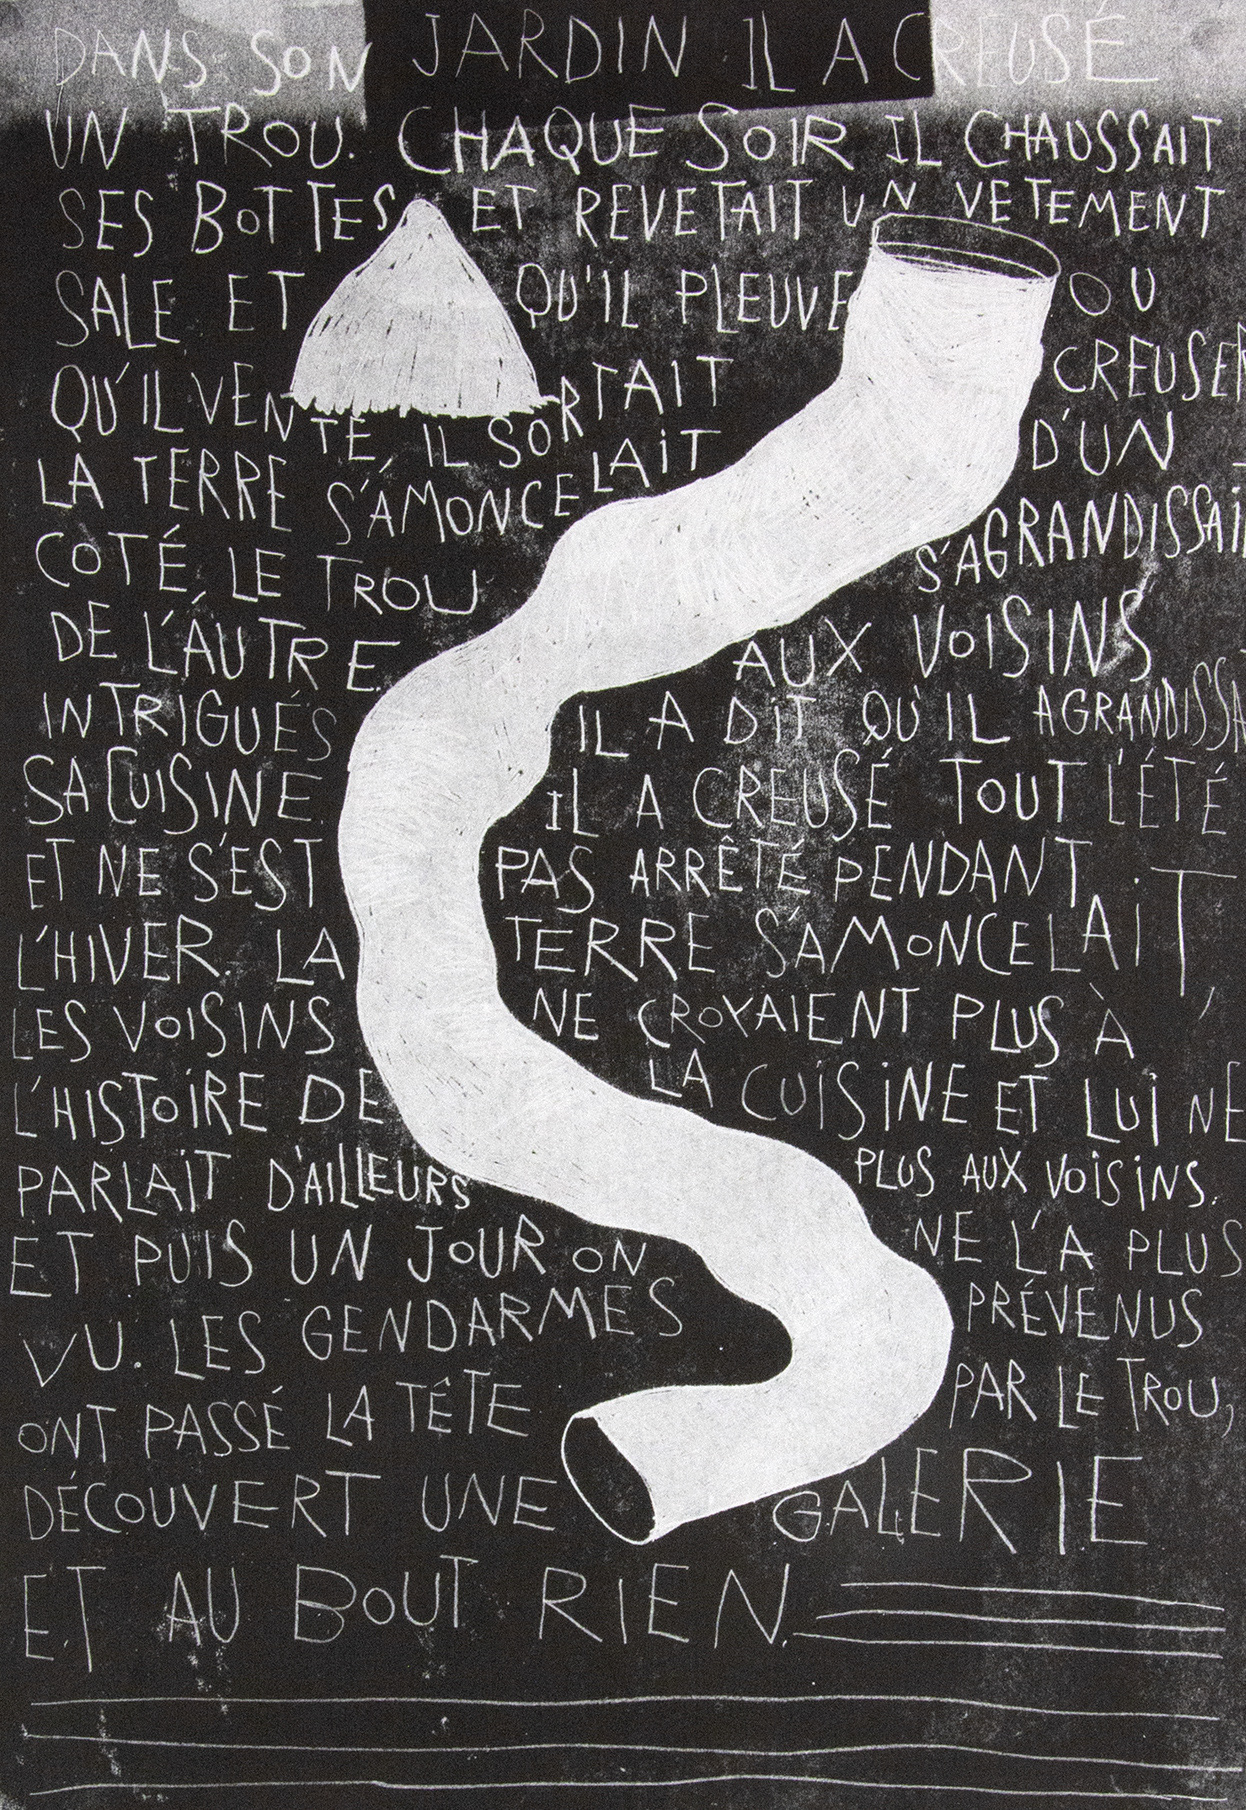 DANS SON JARDIN IL A CREUSÉ
UN TROU. CHAQUE SOIR IL CHAUSSAIT
SES BOTTES ET REVETAIT UN VETEMENT
SALE ET QU'IL PLEUVE OU
QU'IL VENTE, IL SORTAIT CREUSER
LA TERRE S'AMONCELAIT D'UN
COTÉ, LE TROU S'AGRANDISSAIT
DE L'AUTRE. AUX VOISINS
INTRIGUÉS IL A DIT QU'IL AGRANDISSAIT
SA CUISINE. IL A CREUSÉ TOUT L'ÉTÉ
ET NE S'EST PAS ARRÊTÉ PENDANT
L'HIVER. LA TERRE S'AMONCELAIT,
LES VOISINS NE CROYAIENT PLUS À
L'HISTOIRE DE LA CUISINE ET LUI NE
PARLAIT D'AILLEURS PLUS AUX VOISINS.
ET PUIS UN JOUR ON NE L'A PLUS
VU. LES GENDARMES PRÉVENUS
ONT PASSÉ LA TÊTE PAR LE TROU,
DÉCOUVERT UNE GALERIE
ET AU BOUT RIEN.